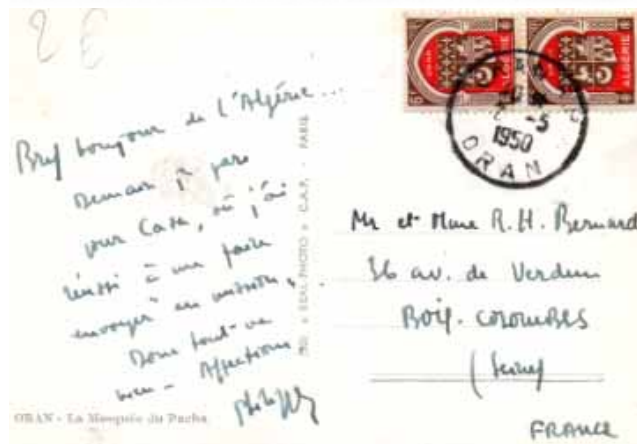 2 €
Bref bonjour de l'Algérie...
Demain je pars
pour Casa, où j'ai
réussi à me faire
"envoyer en mission".
Donc tout va
bien - Affections
Philippe
ORAN - La Mosquée du Pacha
REAL-PHOTO C.A.P. - PARIS
ORAN
ALGÉRIE
ALGÉRIE
-5
1950
ORAN
Mr et Mme R.H. Bernard
36 av. de Verdun
BOIS-COLOMBES
(Seine)
FRANCE